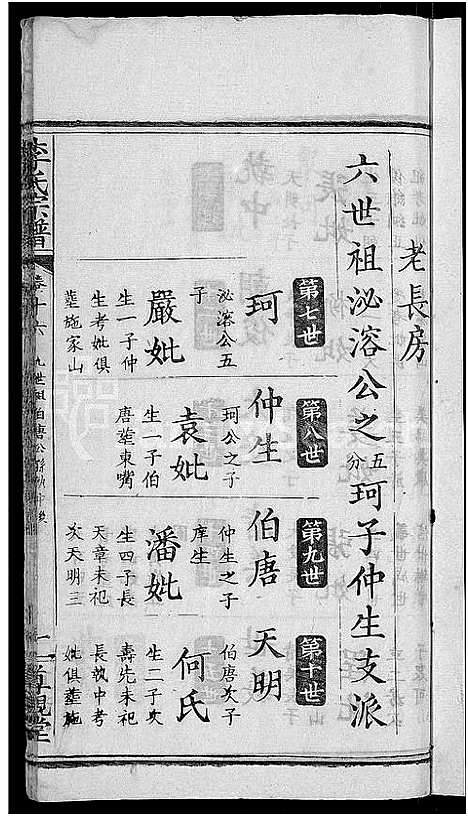 老長房
六世祖泌溶公之五分珂子仲生支派
第七世
珂
泌溶公五
子
嚴妣
生一子仲
生考妣俱
塟施家山
第八世
仲生
珂公之子
袁妣
生一子伯
唐塟東嘴
第九世
伯唐
仲生之子
庠生
潘妣
生四子長
天章未祀
次天明三
第十世
天明
伯唐次子
何氏
生二子次
壽先未祀
長執中考
妣俱塟施
李氏宗譜
卷十六
九世祖伯唐公
尊親堂